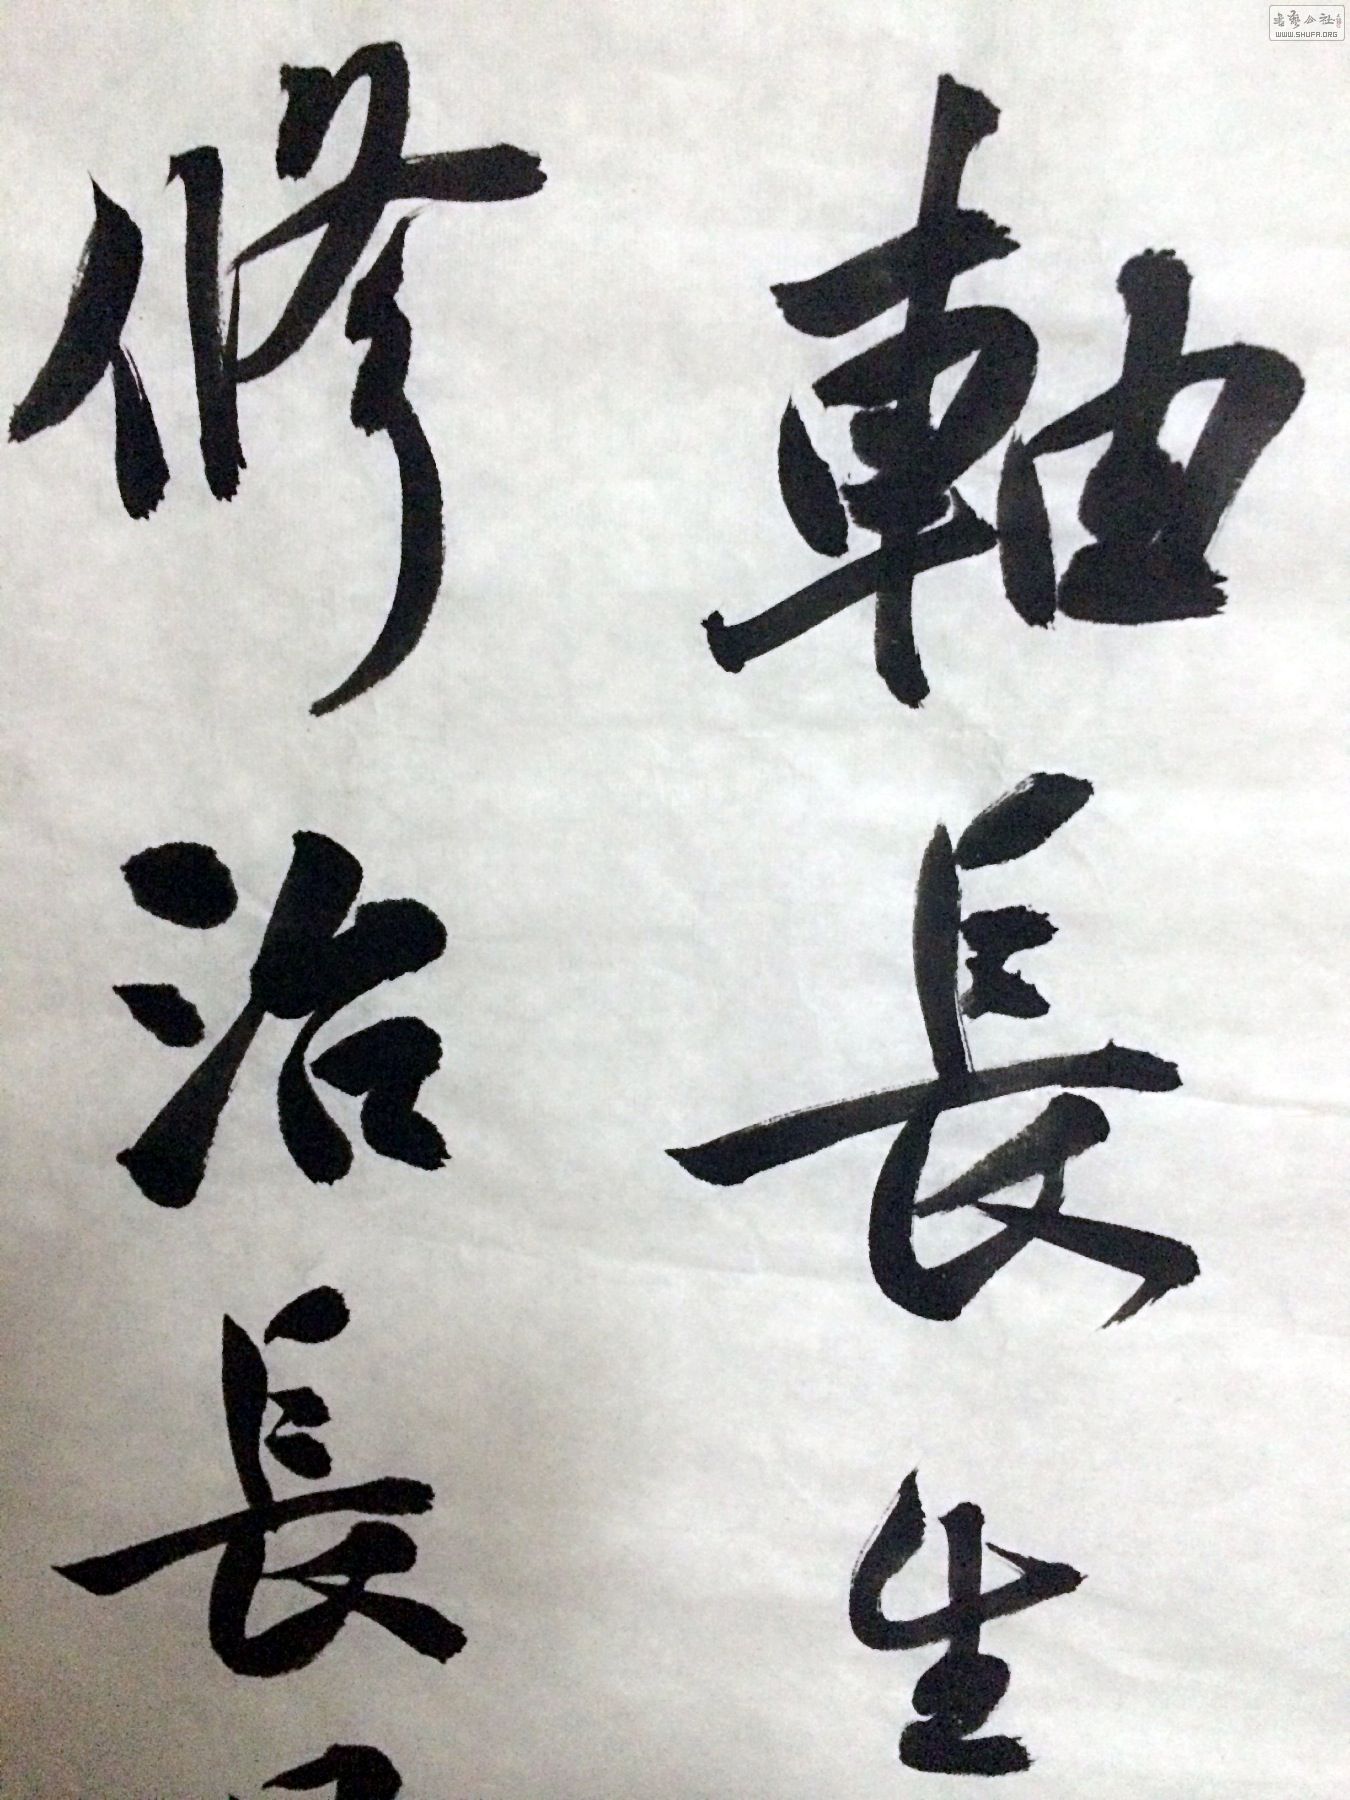 軸長生
修治長
書藝公社
WWW.SHUFA.ORG